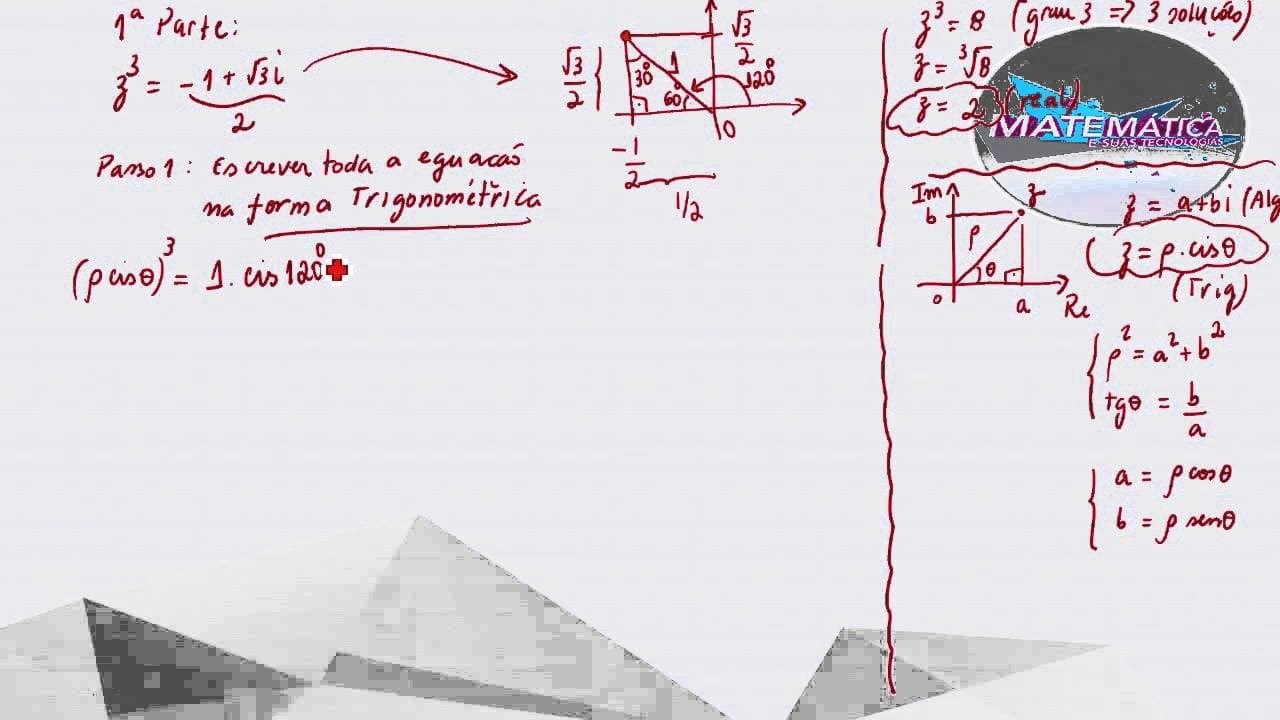 1ª Parte:
z³ = -1 + √3i / 2
Passo 1: Escrever toda a equacaõ
na forma Trigonométrica
(ρ cis θ)³ = 1. cis 120°
√3/2
√3/2
30°
1
60°
120°
0
-1/2
1/2
z³ = 8 (grau 3 => 3 solução)
z = ³√8
z = 2 (real)
MATEMÁTICA
E SUAS TECNOLOGIAS
Im
b
z
ρ
θ
0
a
Re
z = a+bi (Alg
z = ρ. cis θ
(Trig)
ρ² = a² + b²
tg θ = b/a
a = ρ cos θ
b = ρ sen θ